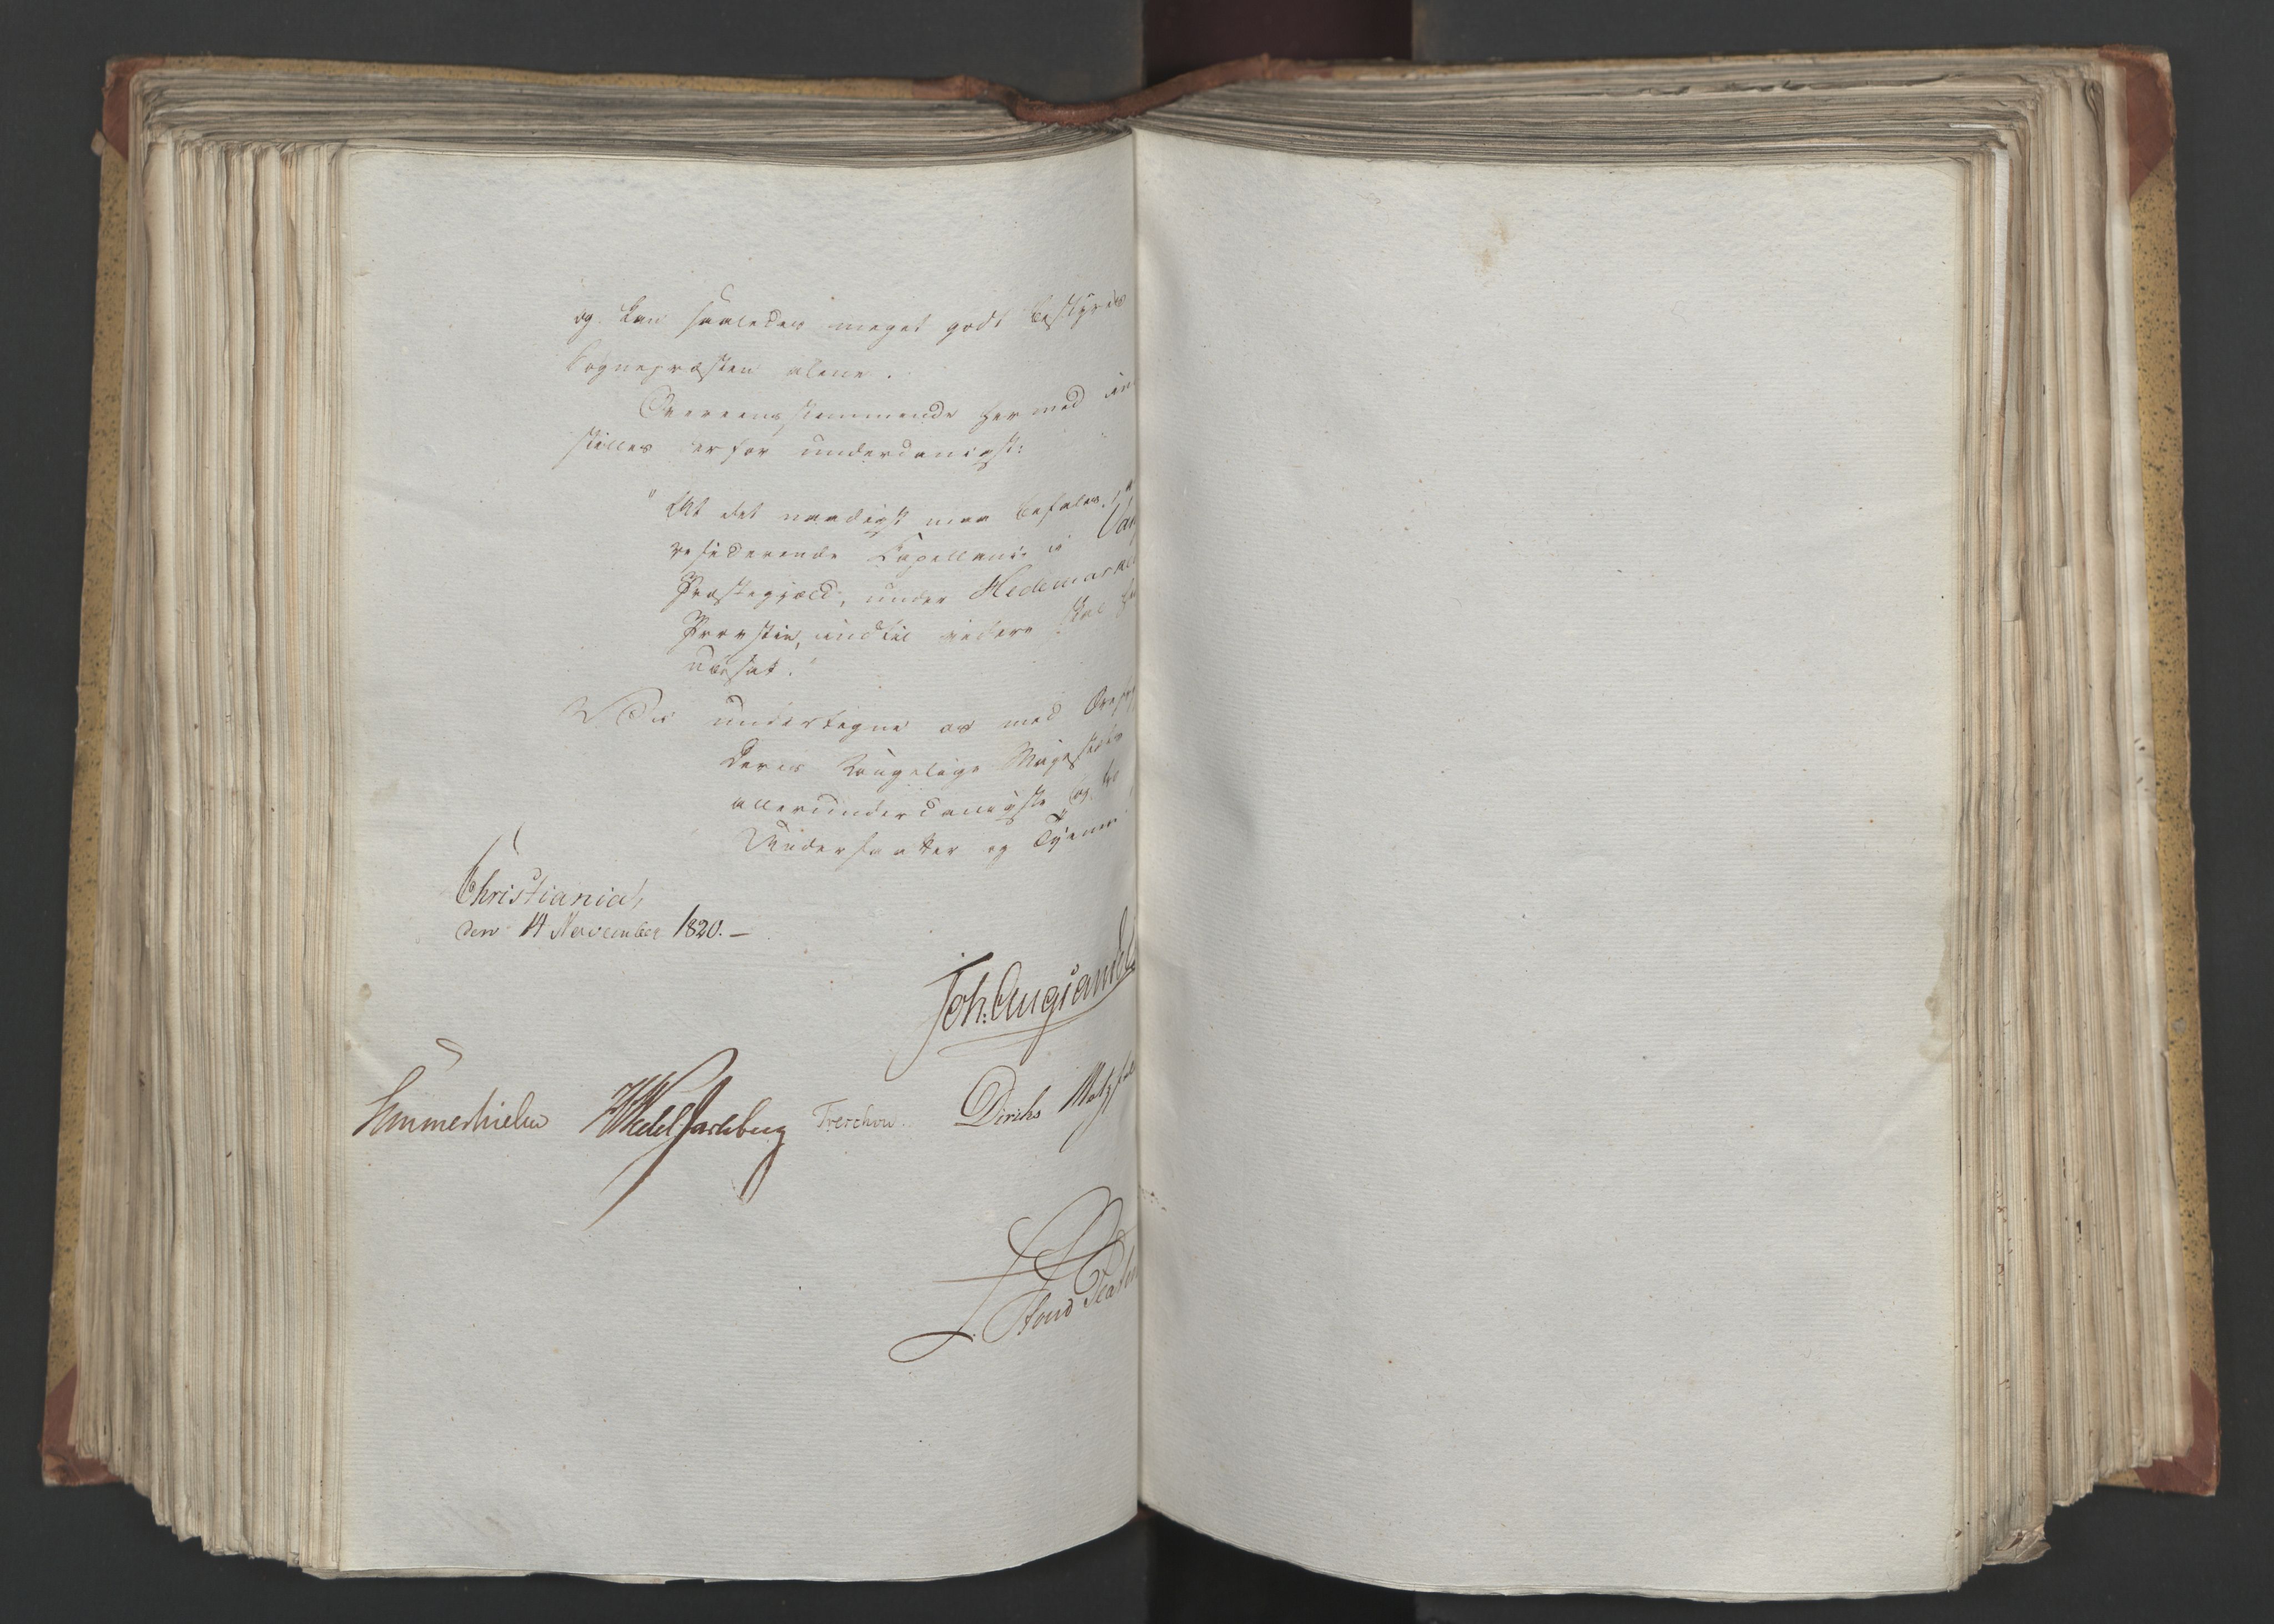 og kan saaledes meget godt bestyres
Sognepræsten alene.
Overeensstemmende hermed ind
stilles derfor underdanigst:
"At det naadigst maa befales, at
residerende Capellanie i Van
Præstegjæld, under Hedemarken
Provstie, indtil videre skal
ubesat."
Vi undertegne os med
Deres Kongelige Majestæts
allerunderdanigste og
Undersaatter og Tjenere
Christiania,
den 14 November 1820.—
Joh: Aug: Sandels
Sommerhielm HWedel Jarlsberg Treschow. Diriks Motzfeldt